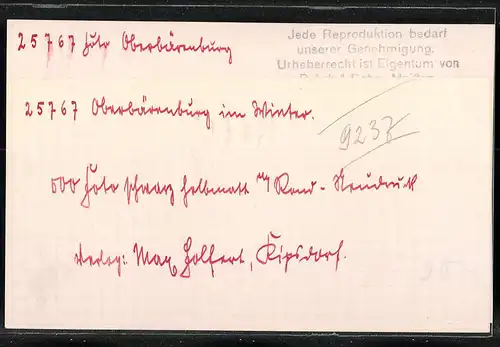 25767 Foto Oberbärenburg
Jede Reproduktion bedarf
unserer Genehmigung.
Urheberrecht ist Eigentum von
25767 Oberbärenburg im Winter.
9237
600 Foto schwarz halbmatt m/ Rand - Neudruck
Verlag: Max Holfert, Kipsdorf.